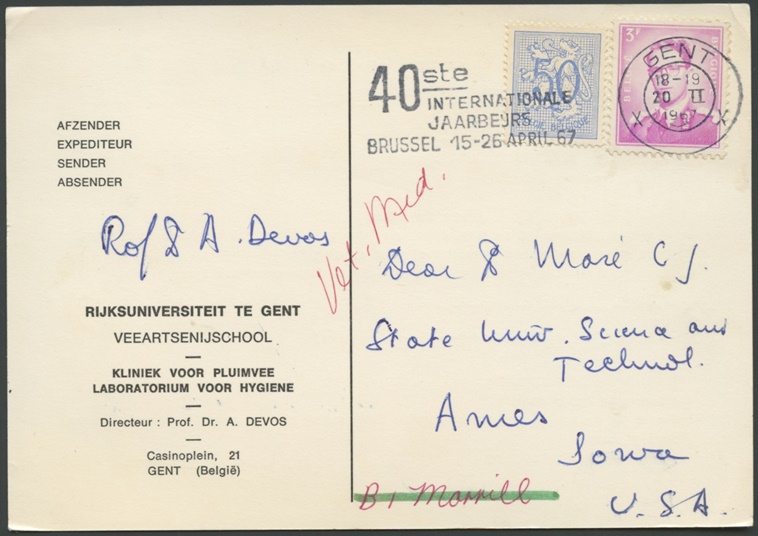 AFZENDER
EXPEDITEUR
SENDER
ABSENDER
Prof Dr A. Devos
RIJKSUNIVERSITEIT TE GENT
VEEARTSENIJSCHOOL
KLINIEK VOOR PLUIMVEE
LABORATORIUM VOOR HYGIENE
Directeur : Prof. Dr. A. DEVOS
Casinoplein, 21
GENT (België)
40ste
INTERNATIONALE
JAARBEURS
BRUSSEL 15-26 APRIL 67
50
BELGIE-BELGIQUE
3F
BELGIË
BELGIQUE
GENT
18-19
20 II
1967
X X
Vet. Med.
Dear Dr Maré C J.
State Univ. Science and
Technol.
Ames
Iowa
U.S.A.
B, Morrill